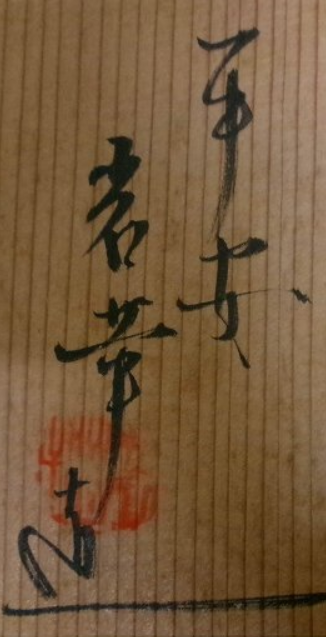 平安
岩華造